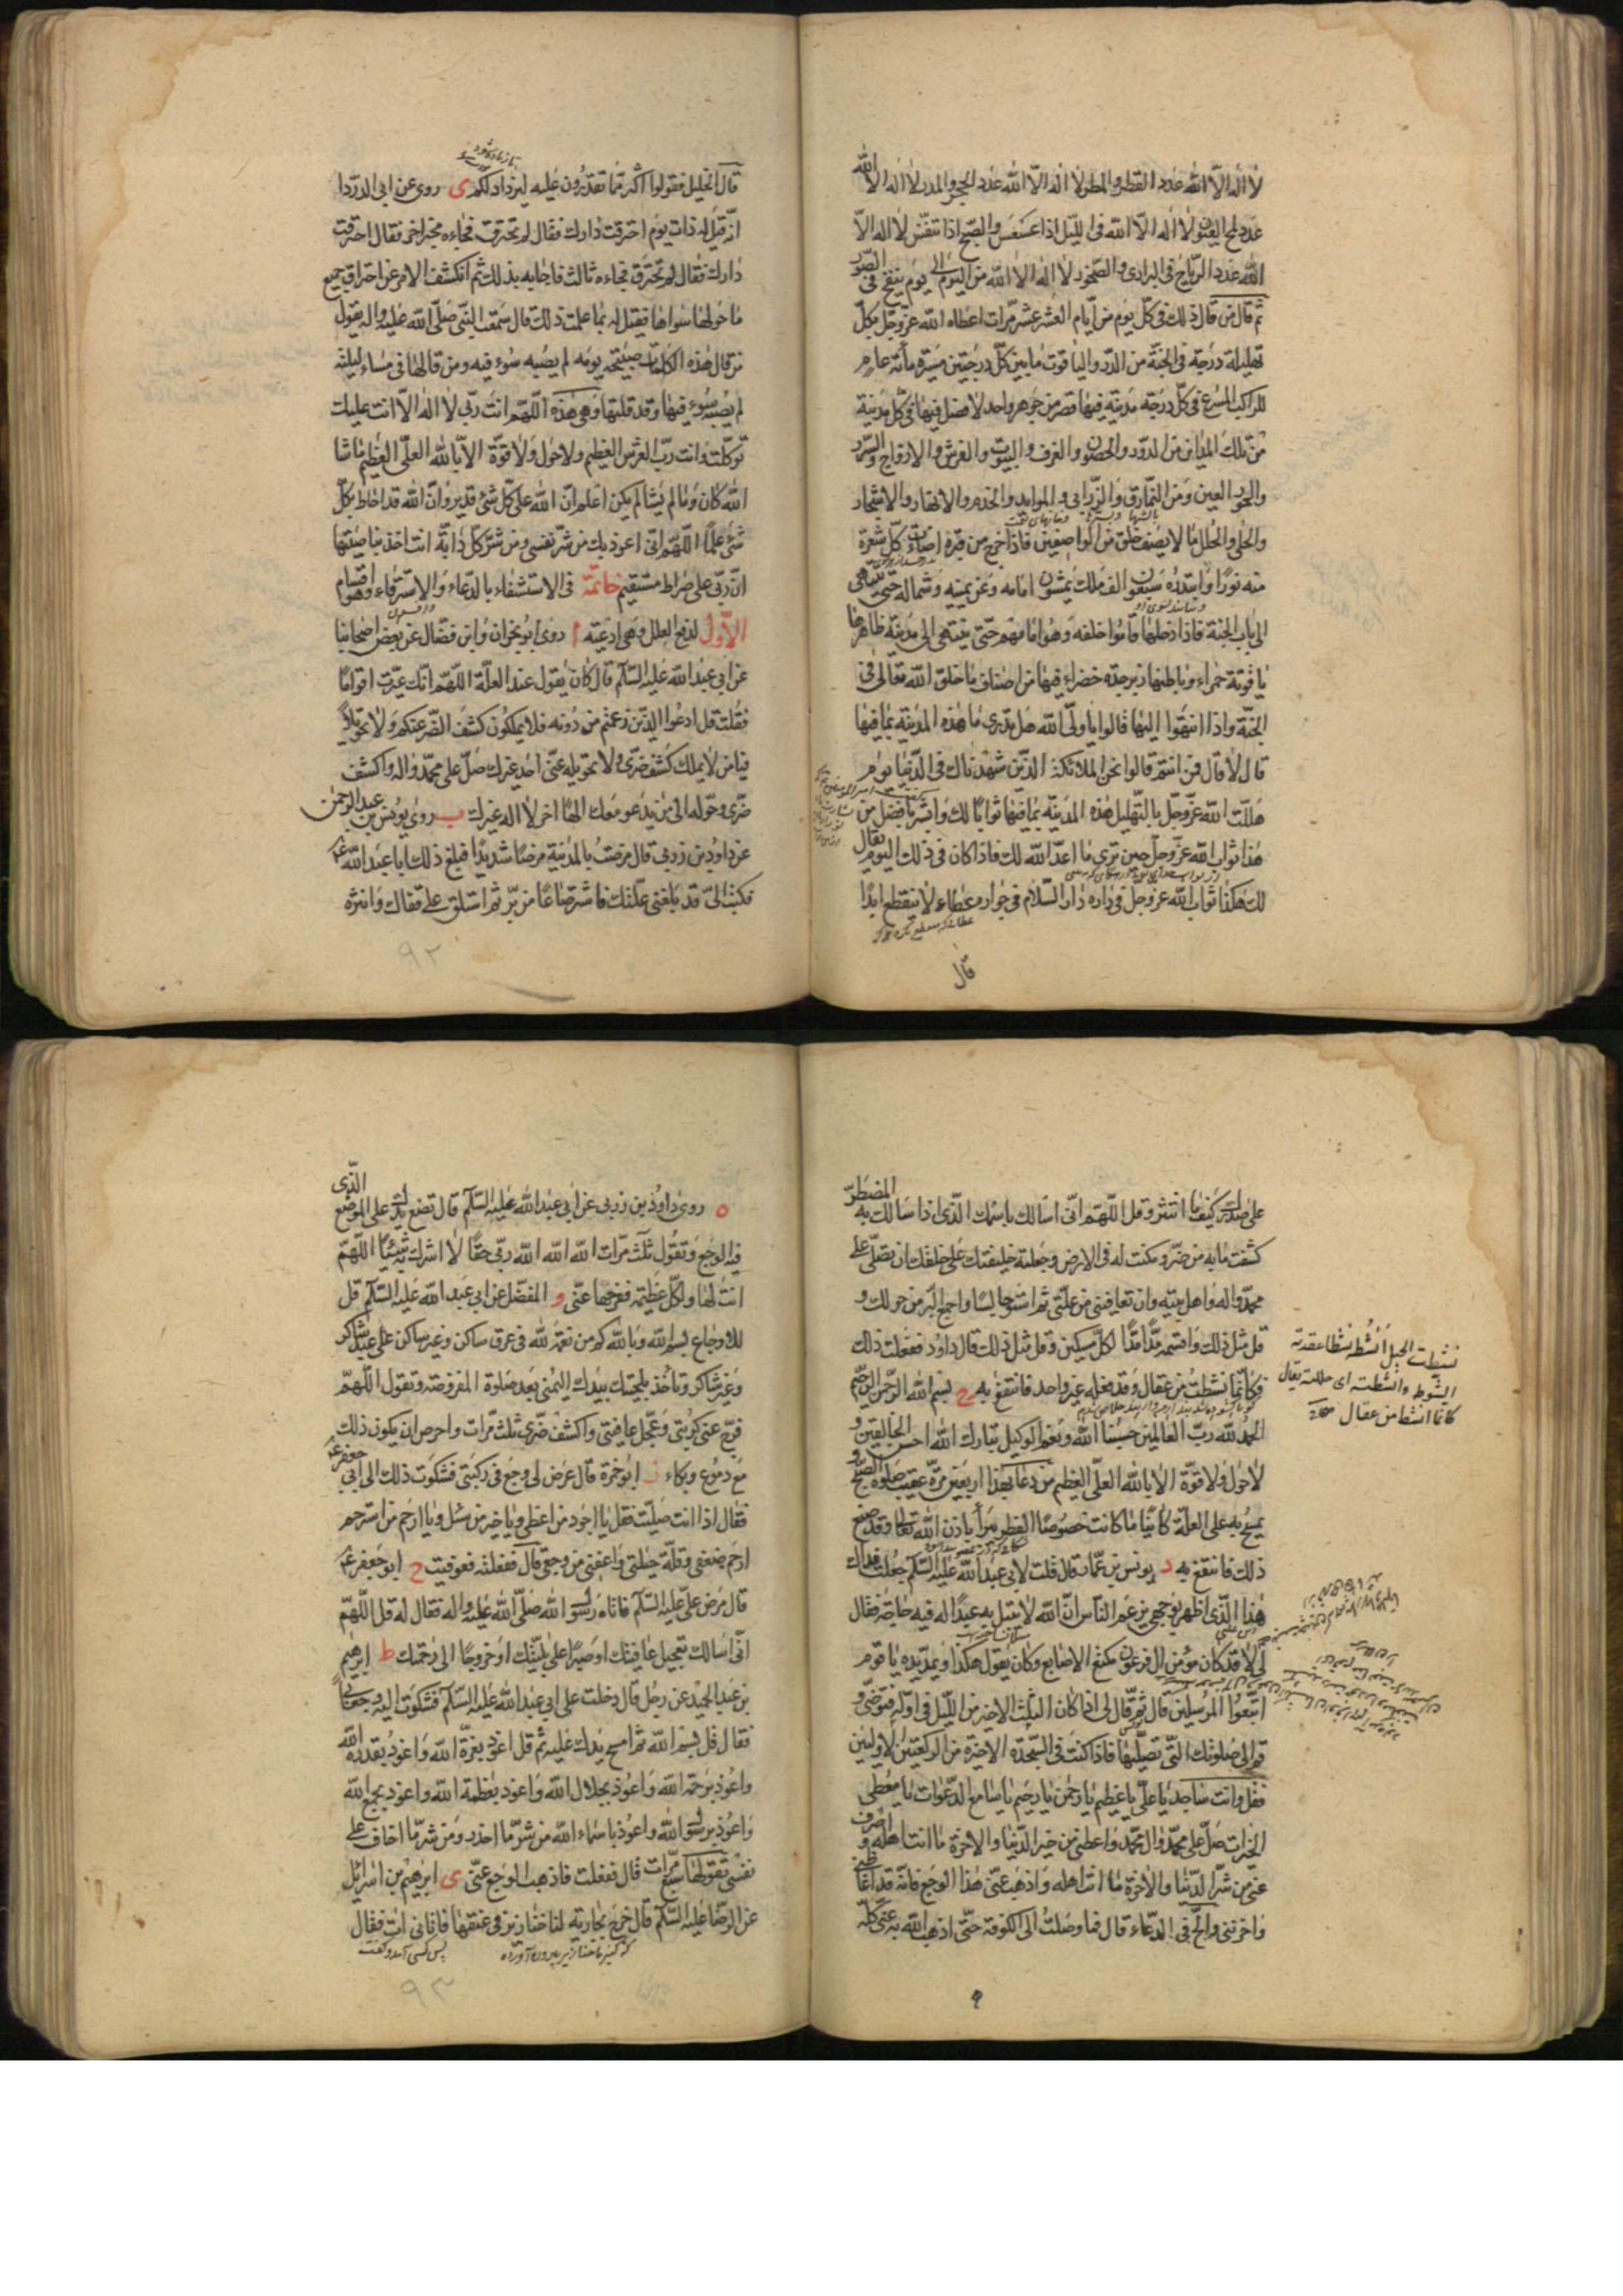 لا اله الّا الله عدد القطر والمطر لا اله الّا الله عدد الحجر والمدر لا اله الّا الله
عدد لمح العيون لا اله الّا الله فى اللّيل اذا عسعس والصّبح اذا تنفّس لا اله الّا
الله عدد الرّياح فى البرارى والصّخور لا اله الّا الله من اليوم الى يوم ينفخ فى الصّور
ثمّ قال من قال ذلك فى كلّ يوم من ايّام العشر عشر مرّات اعطاه الله عزّ وجلّ بكلّ
تهليلة درجة فى الجنّة من الدّر والياقوت ما بين كلّ درجتين مسيرة مأئة عام
للراكب المسرع فى كلّ درجة مدينة فيها قصر من جوهر واحد لا فصل فيها فى كلّ مدينة
من تلك المداين من الدّور والحصون والغرف والبيوت والفرش والازواج والسّرر
والحور العين ومن النّمارق والزّرابى والموايد والخدم والانهار والاشجار
والحلى والحلل ما لا يصف خلق من الواصفين فاذا خرج من قبره اضاءت كلّ شعرة
منه نورًا وابتدره سبعون الف ملك يمشون امامه وعن يمينه وشماله حتّى ينتهى
الى باب الجنة فاذا دخلها قاموا خلفه وهو امامهم حتّى ينتهى الى مدينة ظاهرها
ياقوتة حمراء وباطنها زبرجدة خضراء فيها من اصناف ما خلق الله تعالى فى
الجنّة واذا انتهوا اليها قالوا يا ولىّ الله هل تدرى ما هذه المدينة بما فيها
قال لا قال فمن انتم قالوا نحن الملائكة الذّين شهدناك فى الدّنيا يوم
هلّلت الله عزّ وجلّ بالتّهليل هذه المدينة بما فيها ثوابا لك وابشر بافضل من
هذا ثواب الله عزّ وجلّ حين ترى ما اعدّ الله لك فاذا كان فى ذلك اليوم يقال
لك هكذا ثواب الله عز وجل فى داره دار السّلام فى جواره عطاء لا ينقطع ابدًا
قال
قال الخليل فقولوا اكثر ممّا تقدرون عليه ليزداد لكم ى روى عن ابى الدّردا
انّه قيل له ذات يوم احترقت دارك فقال لم تحترق فجاءه مخبر اخر فقال احترقت
دارك فقال لم تحترق فجاءه ثالث فاجابه بذلك ثم انكشف الامر عن احتراق جميع
ما حولها سواها فقيل له بما علمت ذلك قال سمعت النّبى صلّى الله عليه واله يقول
من قال هذه الكلمات صبيحة يومه لم يصبه سوء فيه ومن قالها فى مساء ليلته
لم يصبه سوء فيها وقد قلتها وهى هذه اللّهمّ انت ربّى لا اله الّا انت عليك
توكّلت وانت ربّ العرش العظيم ولا حول ولا قوّة الّا بالله العلىّ العظيم ما شا
الله كان وما لم يشا لم يكن اعلم انّ الله على كلّ شئ قدير وانّ الله قد احاط بكلّ
شئ علمًا اللّهمّ انّى اعوذ بك من شرّ نفسى ومن شرّ كلّ دابّة انت اخذ بناصيتها
انّ ربّى على صراط مستقيم خاتمة فى الاستشفاء بالدّعاء والاسترقاء وهو اقسام
الاوّل لدفع العلل وهى ادعية ا روى ابو نجران وابن فضّال عن بعض اصحابنا
عن ابى عبد الله عليه السّلام قال كان يقول عند العلّة اللّهمّ انّك عيّرت اقوامًا
فقلت قل ادعوا الذّين زعمتم من دونه فلا يملكون كشف الضّر عنكم ولا تحويلاً
فيا من لا يملك كشف ضرّى ولا تحويله عنّى احد غيرك صلّ على محمّد واله واكشف
ضرّى وحوّله الى من يدعو معك الهًا اخر لا اله غيرك ب روى يونس بن عبد الرحمن
عن داود بن زربى قال مرضت بالمدينة مرضًا شديدًا فبلغ ذلك ابا عبد الله ع
فكتب الىّ قد بلغنى علّتك فاشتر صاعًا من برّ ثم استلق على قفاك وانثره
٩٢
على صدرك كيف ما انتثر وقل اللّهمّ انّى اسالك باسمك الّذى اذا سالك به المضطرّ
كشفت ما به من ضرّ ومكنت له فى الارض وجعلته خليفتك على خلقك ان تصلّى على
محمّد واله واهل بيته وان تعافينى من علّتى ثم استو جالسًا واجمع البّر من حولك و
قل مثل ذلك واقسمه مدًّا مدًّا لكلّ مسكين وقل مثل ذلك قال داود ففعلت ذلك
فكانّما نشطت من عقال وقد فعله غير واحد فانتفع به ج بسم الله الرّحمن الرّحيم
الحمد لله ربّ العالمين حسبنا الله ونعم الوكيل تبارك الله احسن الخالقين و
لا حول ولا قوّة الّا بالله العلىّ العظيم من دعا بهذا اربعين مرّة عقيب صلوة الصّبح و
يمسح به على العلّة كائنًا ما كانت خصوصًا الفطر برأ باذن الله تعالى وقد صنع
ذلك فانتفع به د يونس بن عمّار قال قلت لابى عبد الله عليه السّلام جعلت فداك
هذا الّذى ظهر بوجهى يزعم النّاس انّ الله لا يبتل به عبدًا له فيه حاجة فقال
لى لا قد كان مؤمن ال فرعون مكنع الاصابع وكان يقول هكذا ويمدّ يده يا قوم
اتّبعوا المرسلين قال ثمّ قال لى اذا كان الثلث الاخير من اللّيل فى اوّله فتوضّئ و
قم الى صلوتك التّى تصلّيها فاذا كنت فى السّجدة الاخيرة من الركعتين الاوليين
فقل وانت ساجد يا علىّ يا عظيم يا رحمن يا رحيم يا سامع الدّعوات يا معطى
الخيرات صلّ على محمّد وال محمّد واعطنى من خير الدّنيا والاخرة ما انت اهله و اصرف
عنّى من شرّ الدّنيا والاخرة ما انت اهله واذهب عنّى هذا الوجع فانّه قد اغاظنى
واحزننى والحّ فى الدّعاء قال فما وصلت الى الكوفة حتّى اذهب الله به عنّى كلّه
نشطت الحبل انشط نشطا عقدته
وانشطته اى حللته يقال
كانّما انشط من عقال
ه روى داود بن زربى عن ابى عبد الله عليه السّلام قال تضع يدك على الموضع الّذى
فيه الوجع وتقول ثلث مرّات الله الله الله ربّى حقًّا لا اشرك به شيئًا اللّهمّ
انت لها ولكلّ عظيمة ففرّجها عنّى و المفضّل عن ابى عبد الله عليه السّلام قل
للاوجاع بسم الله وبالله كم من نعمة لله فى عرق ساكن وغير ساكن على عبد شاكر
وغير شاكر وتأخذ بلحيتك بيدك اليمنى بعد صلوة المفروضة وتقول اللّهمّ
فرّج عنّى كربتى وعجّل عافيتى واكشف ضرّى ثلث مرّات واحرص ان يكون ذلك
مع دموع وبكاء ز ابو حمزة قال عرض لى وجع فى ركبتى فشكوت ذلك الى ابى جعفر ع
فقال اذا انت صلّيت فقل يا اجود من اعطى ويا خير من سئل ويا ارحم من استرحم
ارحم ضعفى وقلّة حيلتى واعفنى من وجعى قال ففعلته فعوفيت ح ابو جعفر ع
قال مرض علىّ عليه السّلام فاتاه رسول الله صلّى الله عليه واله فقال له قل اللّهمّ
انّى اسالك تعجيل عافيتك او صبرًا على بليّتك او خروجًا الى رحمتك ط ابرهيم
بن عبد الحميد عن رجل قال دخلت على ابى عبد الله عليه السّلام فشكوت اليه وجعًا بى
فقال قل بسم الله ثم امسح يدك عليه ثم قل اعوذ بعزّة الله واعوذ بقدرة الله
واعوذ برحمة الله واعوذ بجلال الله واعوذ بعظمة الله واعوذ بجمع الله
واعوذ برسول الله واعوذ باسماء الله من شرّ ما احذر ومن شرّ ما اخاف على
نفسى تقولها سبع مرّات قال ففعلت فاذهب الوجع عنّى ى ابرهيم بن اسرائيل
عن الرضا عليه السّلام قال خرج بجارية لنا خنازير فى عنقها فاتانى ات فقال
كه كنيز ما خنازير بيرون آورده
پس كسى آمد و گفت
٩٣